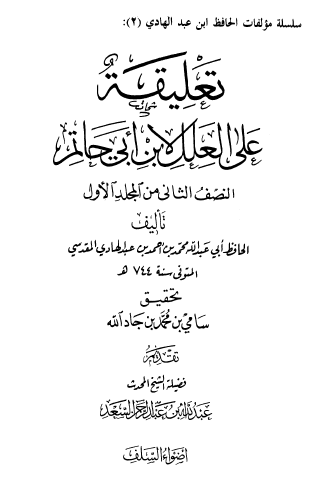 سلسلة مؤلفات الحافظ ابن عبد الهادي (٢):
تعليقة
على العلل لابن أبي حاتم
النصف الثاني من المجلد الأول
تأليف
الحافظ أبي عبد الله محمد بن أحمد بن عبد الهادي المقدسي
المتوفى سنة ٧٤٤ هـ
تحقيق
سامي بن محمد بن جاد الله
تقديم
فضيلة الشيخ المحدث
عبد الله بن عبد الرحمن السعد
أضواء السلف